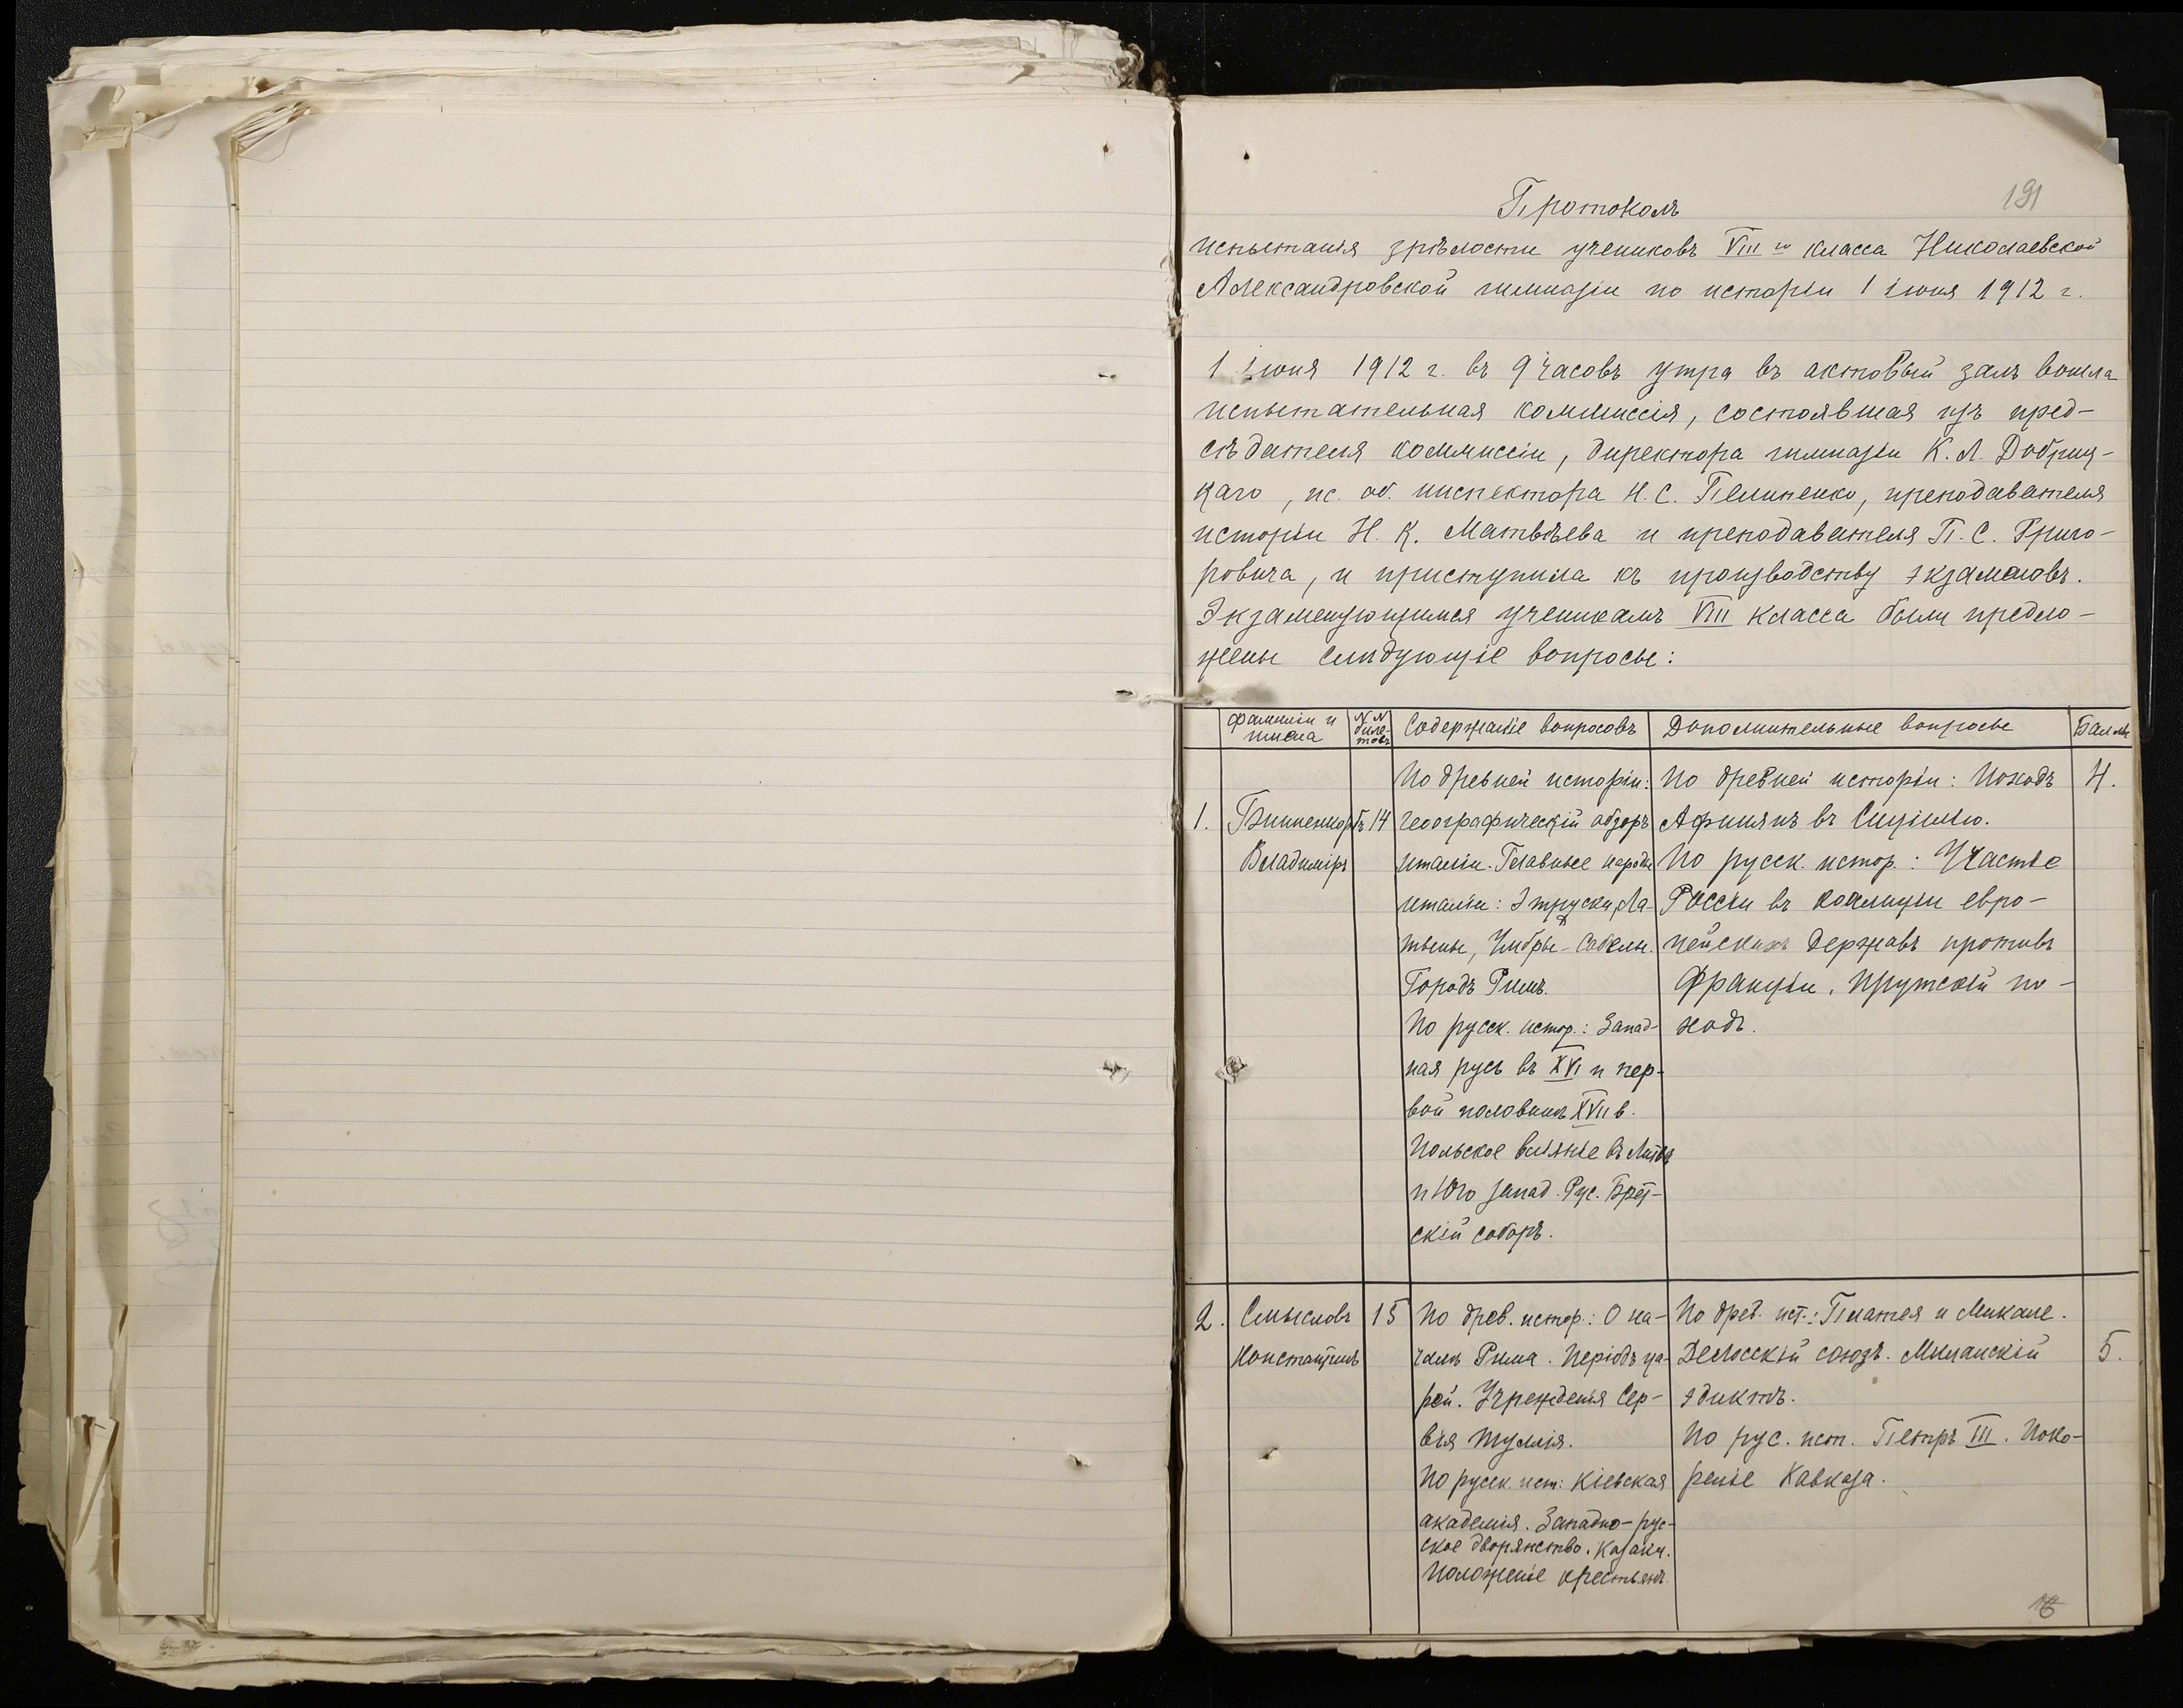 191
Протоколъ
испытанія зрѣлости учениковъ VIII го класса Николаевской
Александровской гимназіи по исторіи 1 іюня 1912 г.
1 іюня 1912 г. въ 9 часовъ утра въ актовый залъ вошла
испытательная коммиссія, состоявшая изъ пред-
сѣдателя коммиссіи, директора гимназіи К. Л. Добриц-
каго, ис. об. инспектора Н. С. Пелипенко, преподавателя
исторіи Н. К. Матвѣева и преподавателя П. С. Григо-
ровича, и приступила къ производству экзаменовъ.
Экзаменующимся ученикамъ VIII класса были предло-
жены слѣдующіе вопросы:
фамиліи и имена | N N билетовъ | Содержаніе вопросовъ | Дополнительные вопросы | Баллы
По древней исторіи: | По древней исторіи: Походъ | 4.
1. | 14 | географическій обзоръ | Афинянъ въ Сицилію.
Владиміръ | италіи. Главные народы | По русск. истор.: Участіе
италіи: Этруски, Ла- | Россіи въ коалиціи евро-
тины, Умбры - Сабелы. | пейскихъ державъ противъ
Городъ Римъ. | Франціи. Прутскій по-
По русск. истор.: Запад- | ходъ.
ная русь въ XVI и пер-
вой половинѣ XVII в.
Польское вліяніе въ Литвѣ
и Юго запад. Рус. Брест-
скій соборъ.
2. | Смысловъ | 15 | По древ. истор.: О на- | По древ. ист.: Платея и Микале.
Константинъ | чалѣ Рима. Періодъ ца- | Делосскій союзъ. Миланскій | 5.
рей. Учрежденія Сер- | эдиктъ.
вія Туллія. | По рус. ист. Петръ III. Поко-
По русск. ист: Кіевская | реніе Кавказа.
академія. Западно-рус-
ское дворянство. Казаки.
Положеніе крестьянъ.